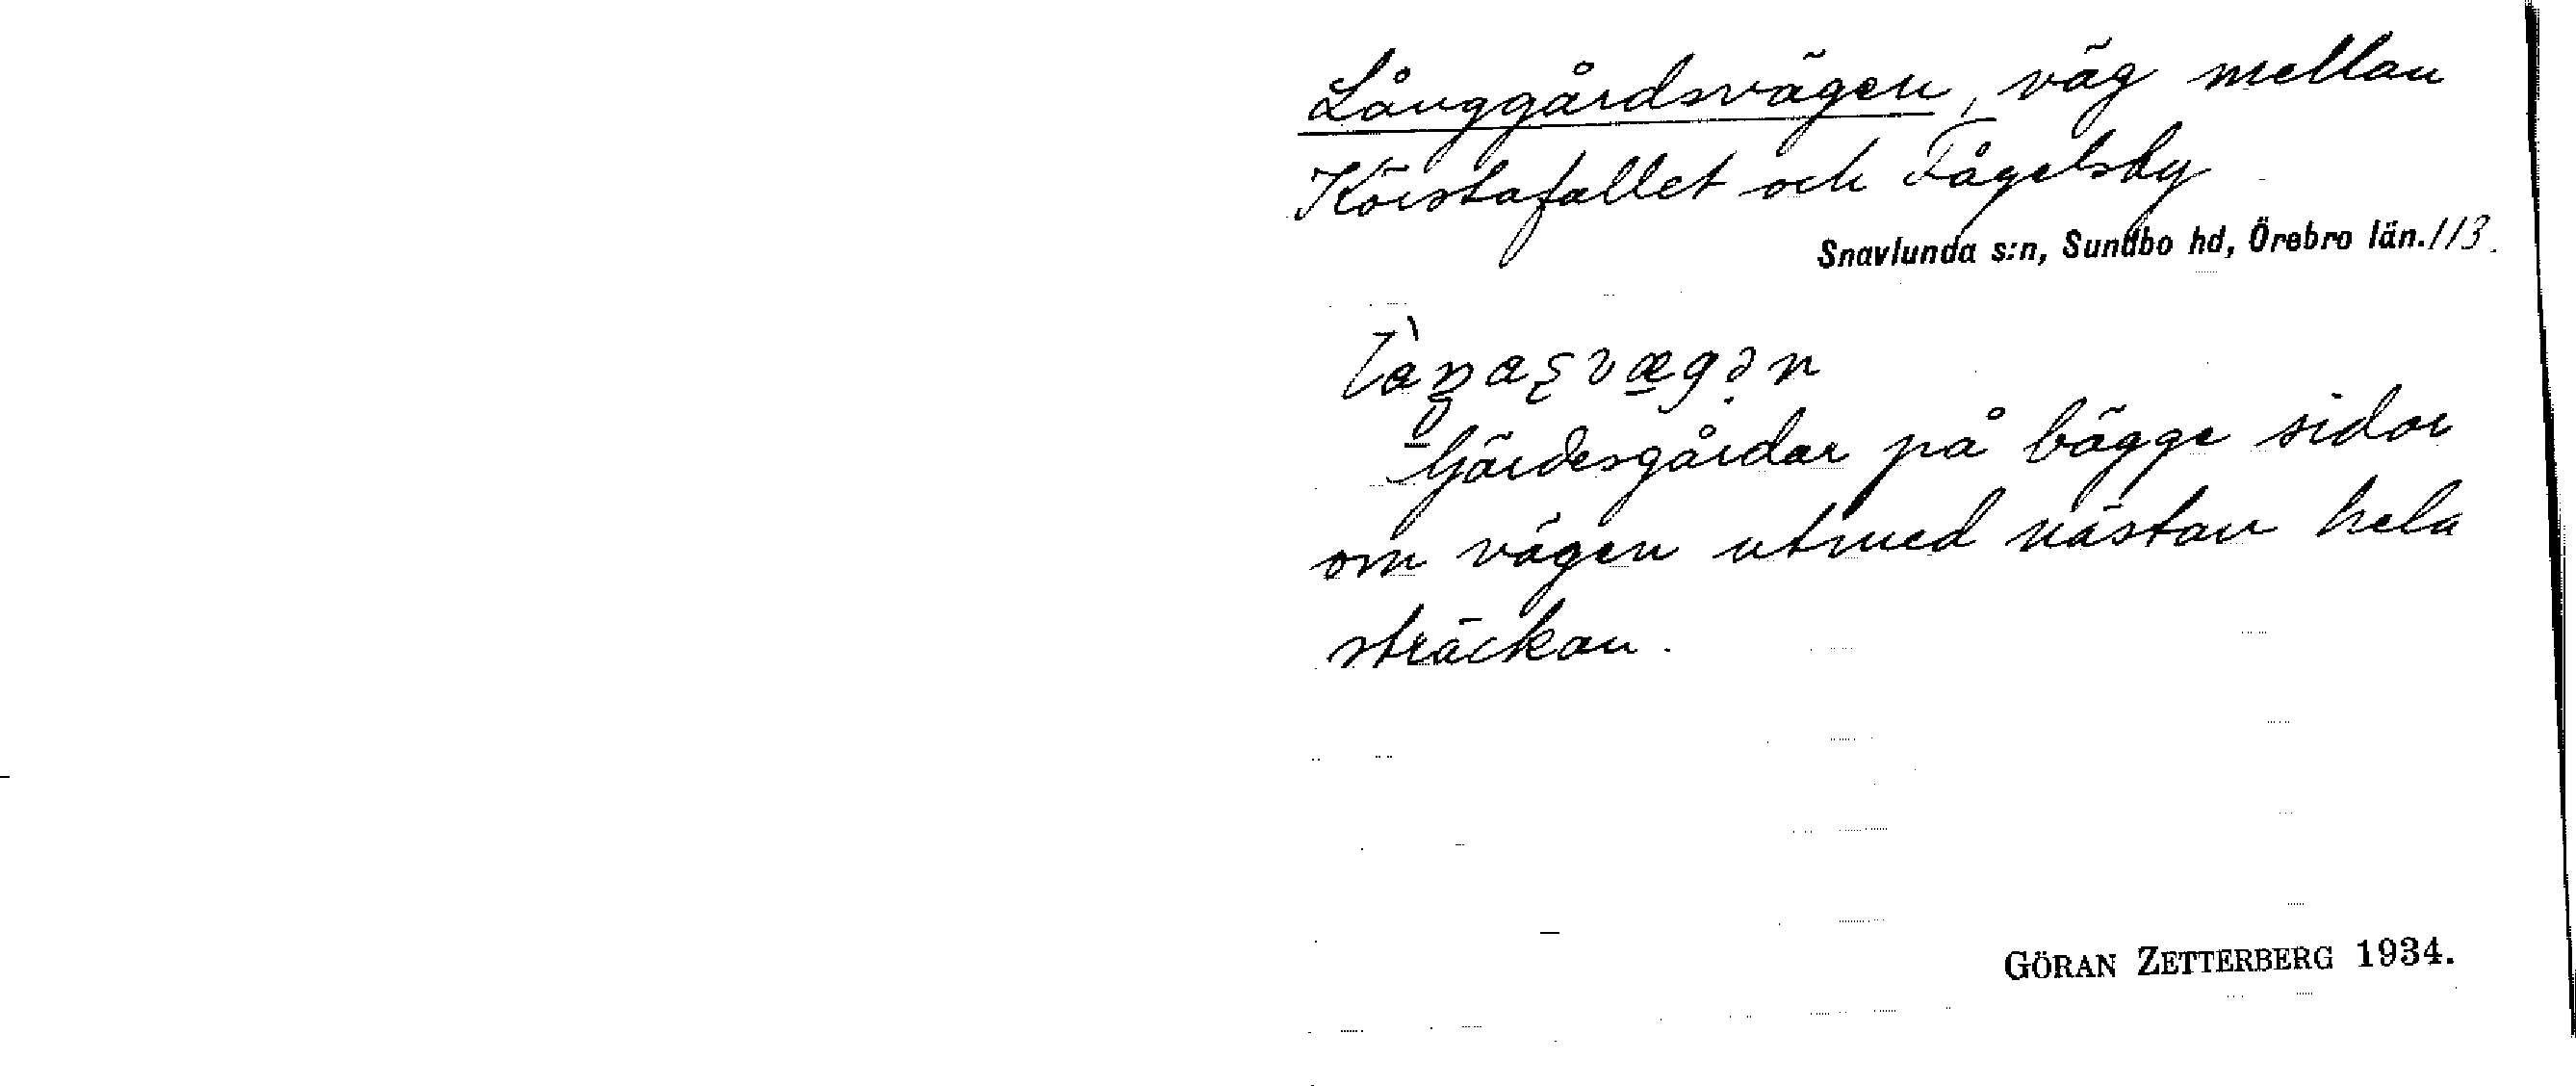 Långgårdsvägen, väg mellan
Körstafallet och Fågelsby
Snavlunda s:n, Sundbo hd, Örebro län. 113.
Gärdesgårdar på bägge sidor
om vägen utmed nästan hela
sträckan.
GÖRAN ZETTERBERG 1934.